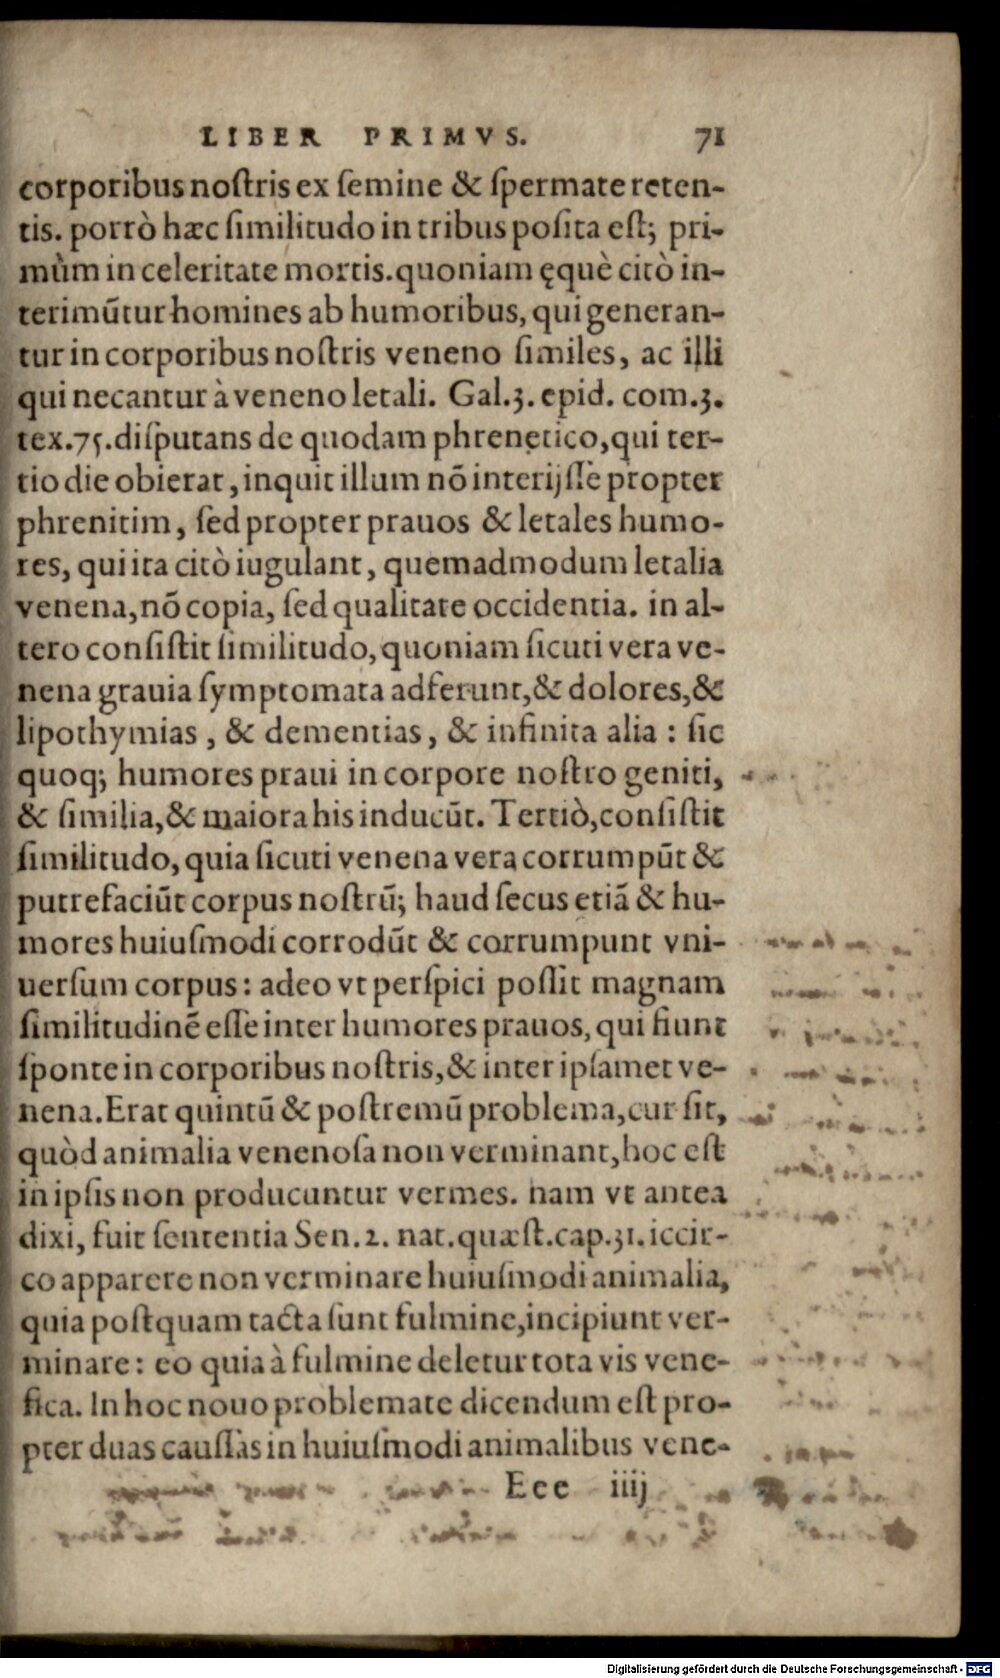 LIBER PRIMVS. 71
corporibus nostris ex semine & spermate reten-
tis. porrò hæc similitudo in tribus posita est; pri-
mùm in celeritate mortis. quoniam ęquè citò in-
terimũtur homines ab humoribus, qui generan-
tur in corporibus nostris veneno similes, ac illi
qui necantur à veneno letali. Gal.3. epid. com.3.
tex.75. disputans de quodam phrenetico, qui ter-
tio die obierat, inquit illum nõ interijsse propter
phrenitim, sed propter prauos & letales humo-
res, qui ita citò iugulant, quemadmodum letalia
venena, nõ copia, sed qualitate occidentia. in al-
tero consistit similitudo, quoniam sicuti vera ve-
nena grauia symptomata adferunt, & dolores, &
lipothymias, & dementias, & infinita alia : sic
quoq; humores praui in corpore nostro geniti,
& similia, & maiora his inducũt. Tertiò, consistit
similitudo, quia sicuti venena vera corrumpũt &
putrefaciũt corpus nostrũ; haud secus etiã & hu-
mores huiusmodi corrodũt & corrumpunt vni-
uersum corpus : adeo vt perspici possit magnam
similitudinẽ esse inter humores prauos, qui fiunt
sponte in corporibus nostris, & inter ipsamet ve-
nena. Erat quintũ & postremũ problema, cur sit,
quòd animalia venenosa non verminant, hoc est
in ipsis non producuntur vermes. nam vt antea
dixi, fuit sententia Sen.2. nat.quæst.cap.31. iccir-
co apparere non verminare huiusmodi animalia,
quia postquam tacta sunt fulmine, incipiunt ver-
minare : eo quia à fulmine deletur tota vis vene-
fica. In hoc nouo problemate dicendum est pro-
pter duas caussas in huiusmodi animalibus vene-
Eee iiij
Digitalisierung gefördert durch die Deutsche Forschungsgemeinschaft - DFG